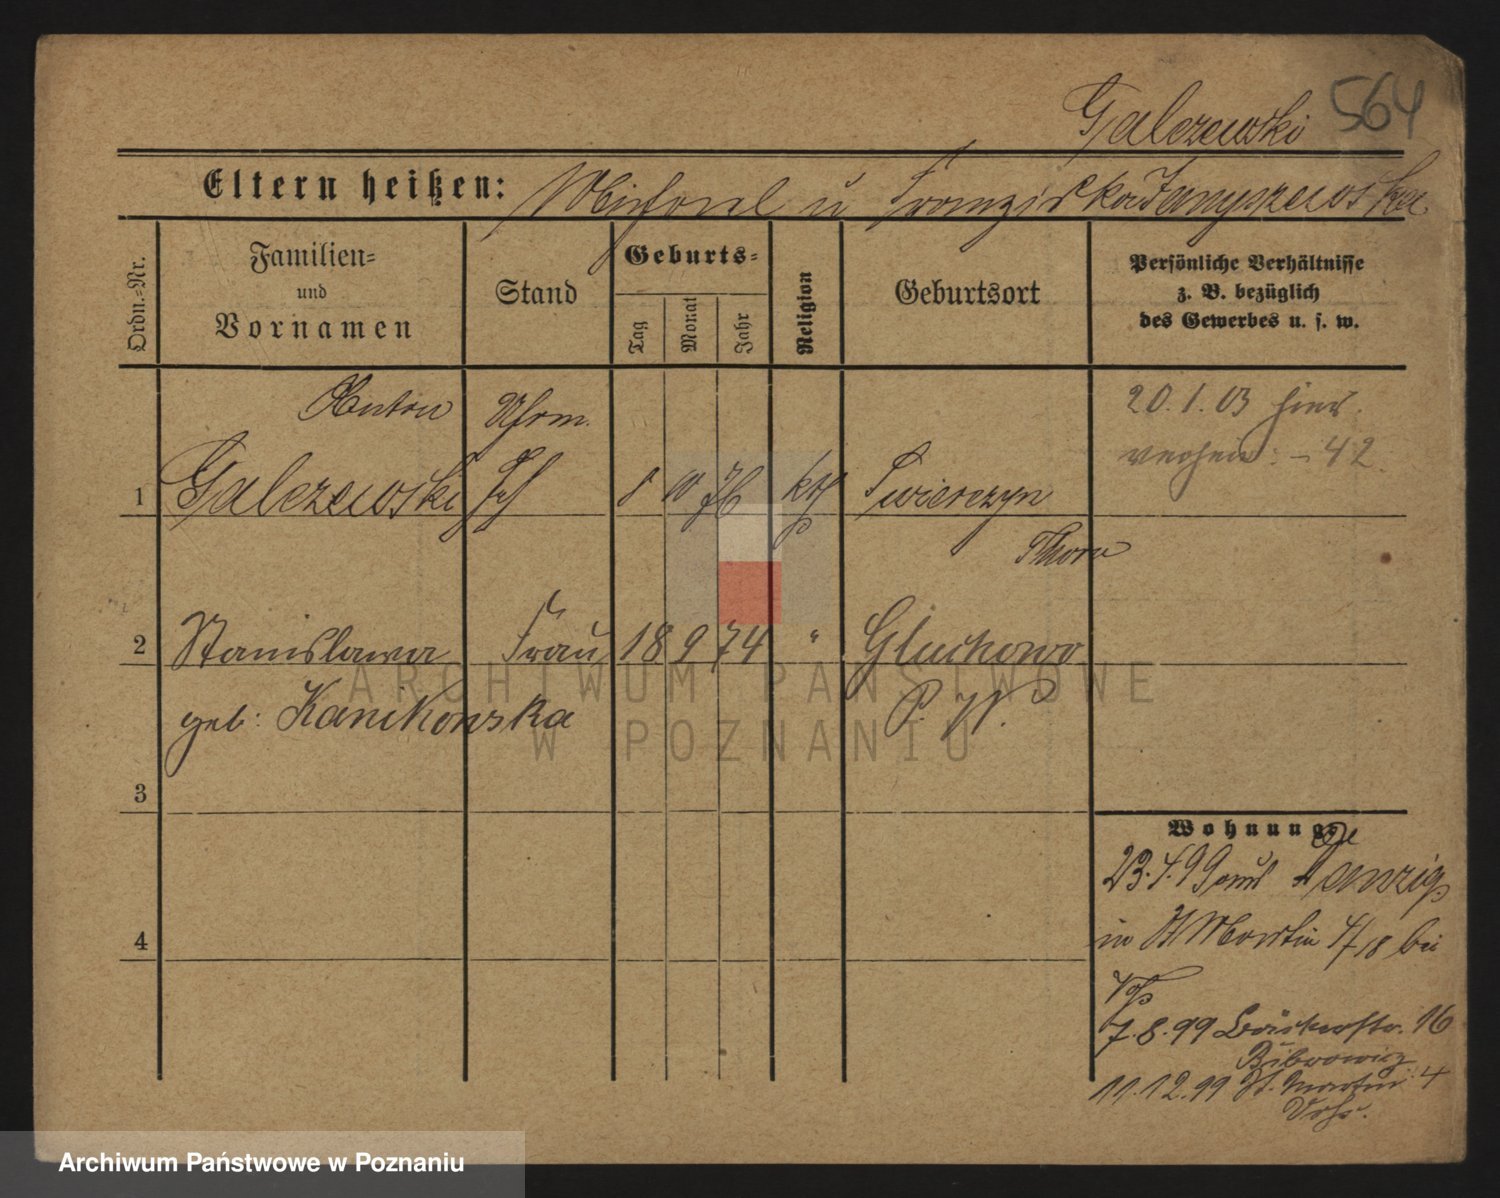 Galczewski 564
Eltern heißen: Michael u Franziska Janyszewska
Ordn.-Nr.
Familien-
und
Vornamen
Stand
Geburts-
Tag
Monat
Jahr
Religion
Geburtsort
Persönliche Verhältnisse
z. B. bezüglich
des Gewerbes u. s. w.
Anton Uhrm.
1 Galczewski 8 10 76 kth Twierczyn
Thorn
20.1.03 hier
- 42.
2 Stanislawa Frau 18 9 74 " Gluchowo
geb: Kanikowska P. W.
3
4
Wohnung
23.4.99 aus Danzig
in St Martin 4/18 bei
7.8.99 Bäckerstr. 16
Bibrowicz
11.12.99 St. Martin 4
ARCHIWUM PAŃSTWOWE
W POZNANIU
Archiwum Państwowe w Poznaniu